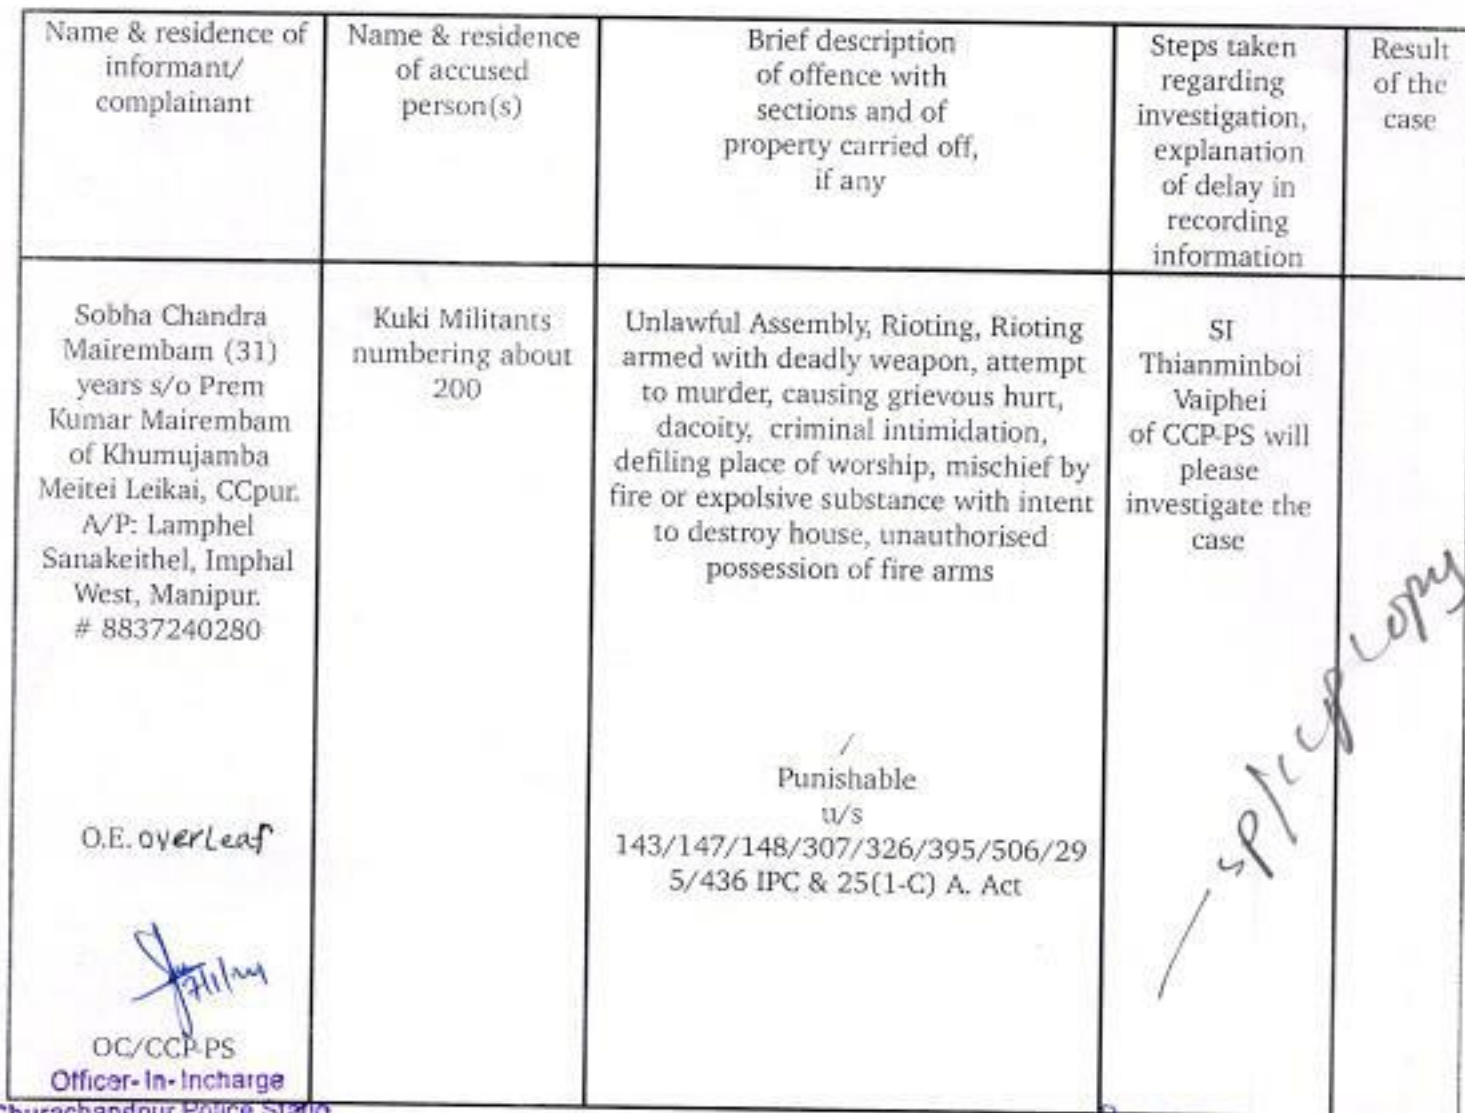 Name & residence of
informant/
complainant
Name & residence
of accused
person(s)
Brief description
of offence with
sections and of
property carried off,
if any
Steps taken
regarding
investigation,
explanation
of delay in
recording
information
Result
of the
case
Sobha Chandra
Mairembam (31)
years s/o Prem
Kumar Mairembam
of Khumujamba
Meitei Leikai, CCpur.
A/P: Lamphel
Sanakeithel, Imphal
West, Manipur.
# 8837240280
O.E. overleaf
7/1/24
OC/CCP-PS
Officer-In-Incharge
Churachandpur Police Statio
Kuki Militants
numbering about
200
Unlawful Assembly, Rioting, Rioting
armed with deadly weapon, attempt
to murder, causing grievous hurt,
dacoity, criminal intimidation,
defiling place of worship, mischief by
fire or expolsive substance with intent
to destroy house, unauthorised
possession of fire arms
/
Punishable
u/s
143/147/148/307/326/395/506/29
5/436 IPC & 25(1-C) A. Act
SI
Thianminboi
Vaiphei
of CCP-PS will
please
investigate the
case
SP/CCP copy